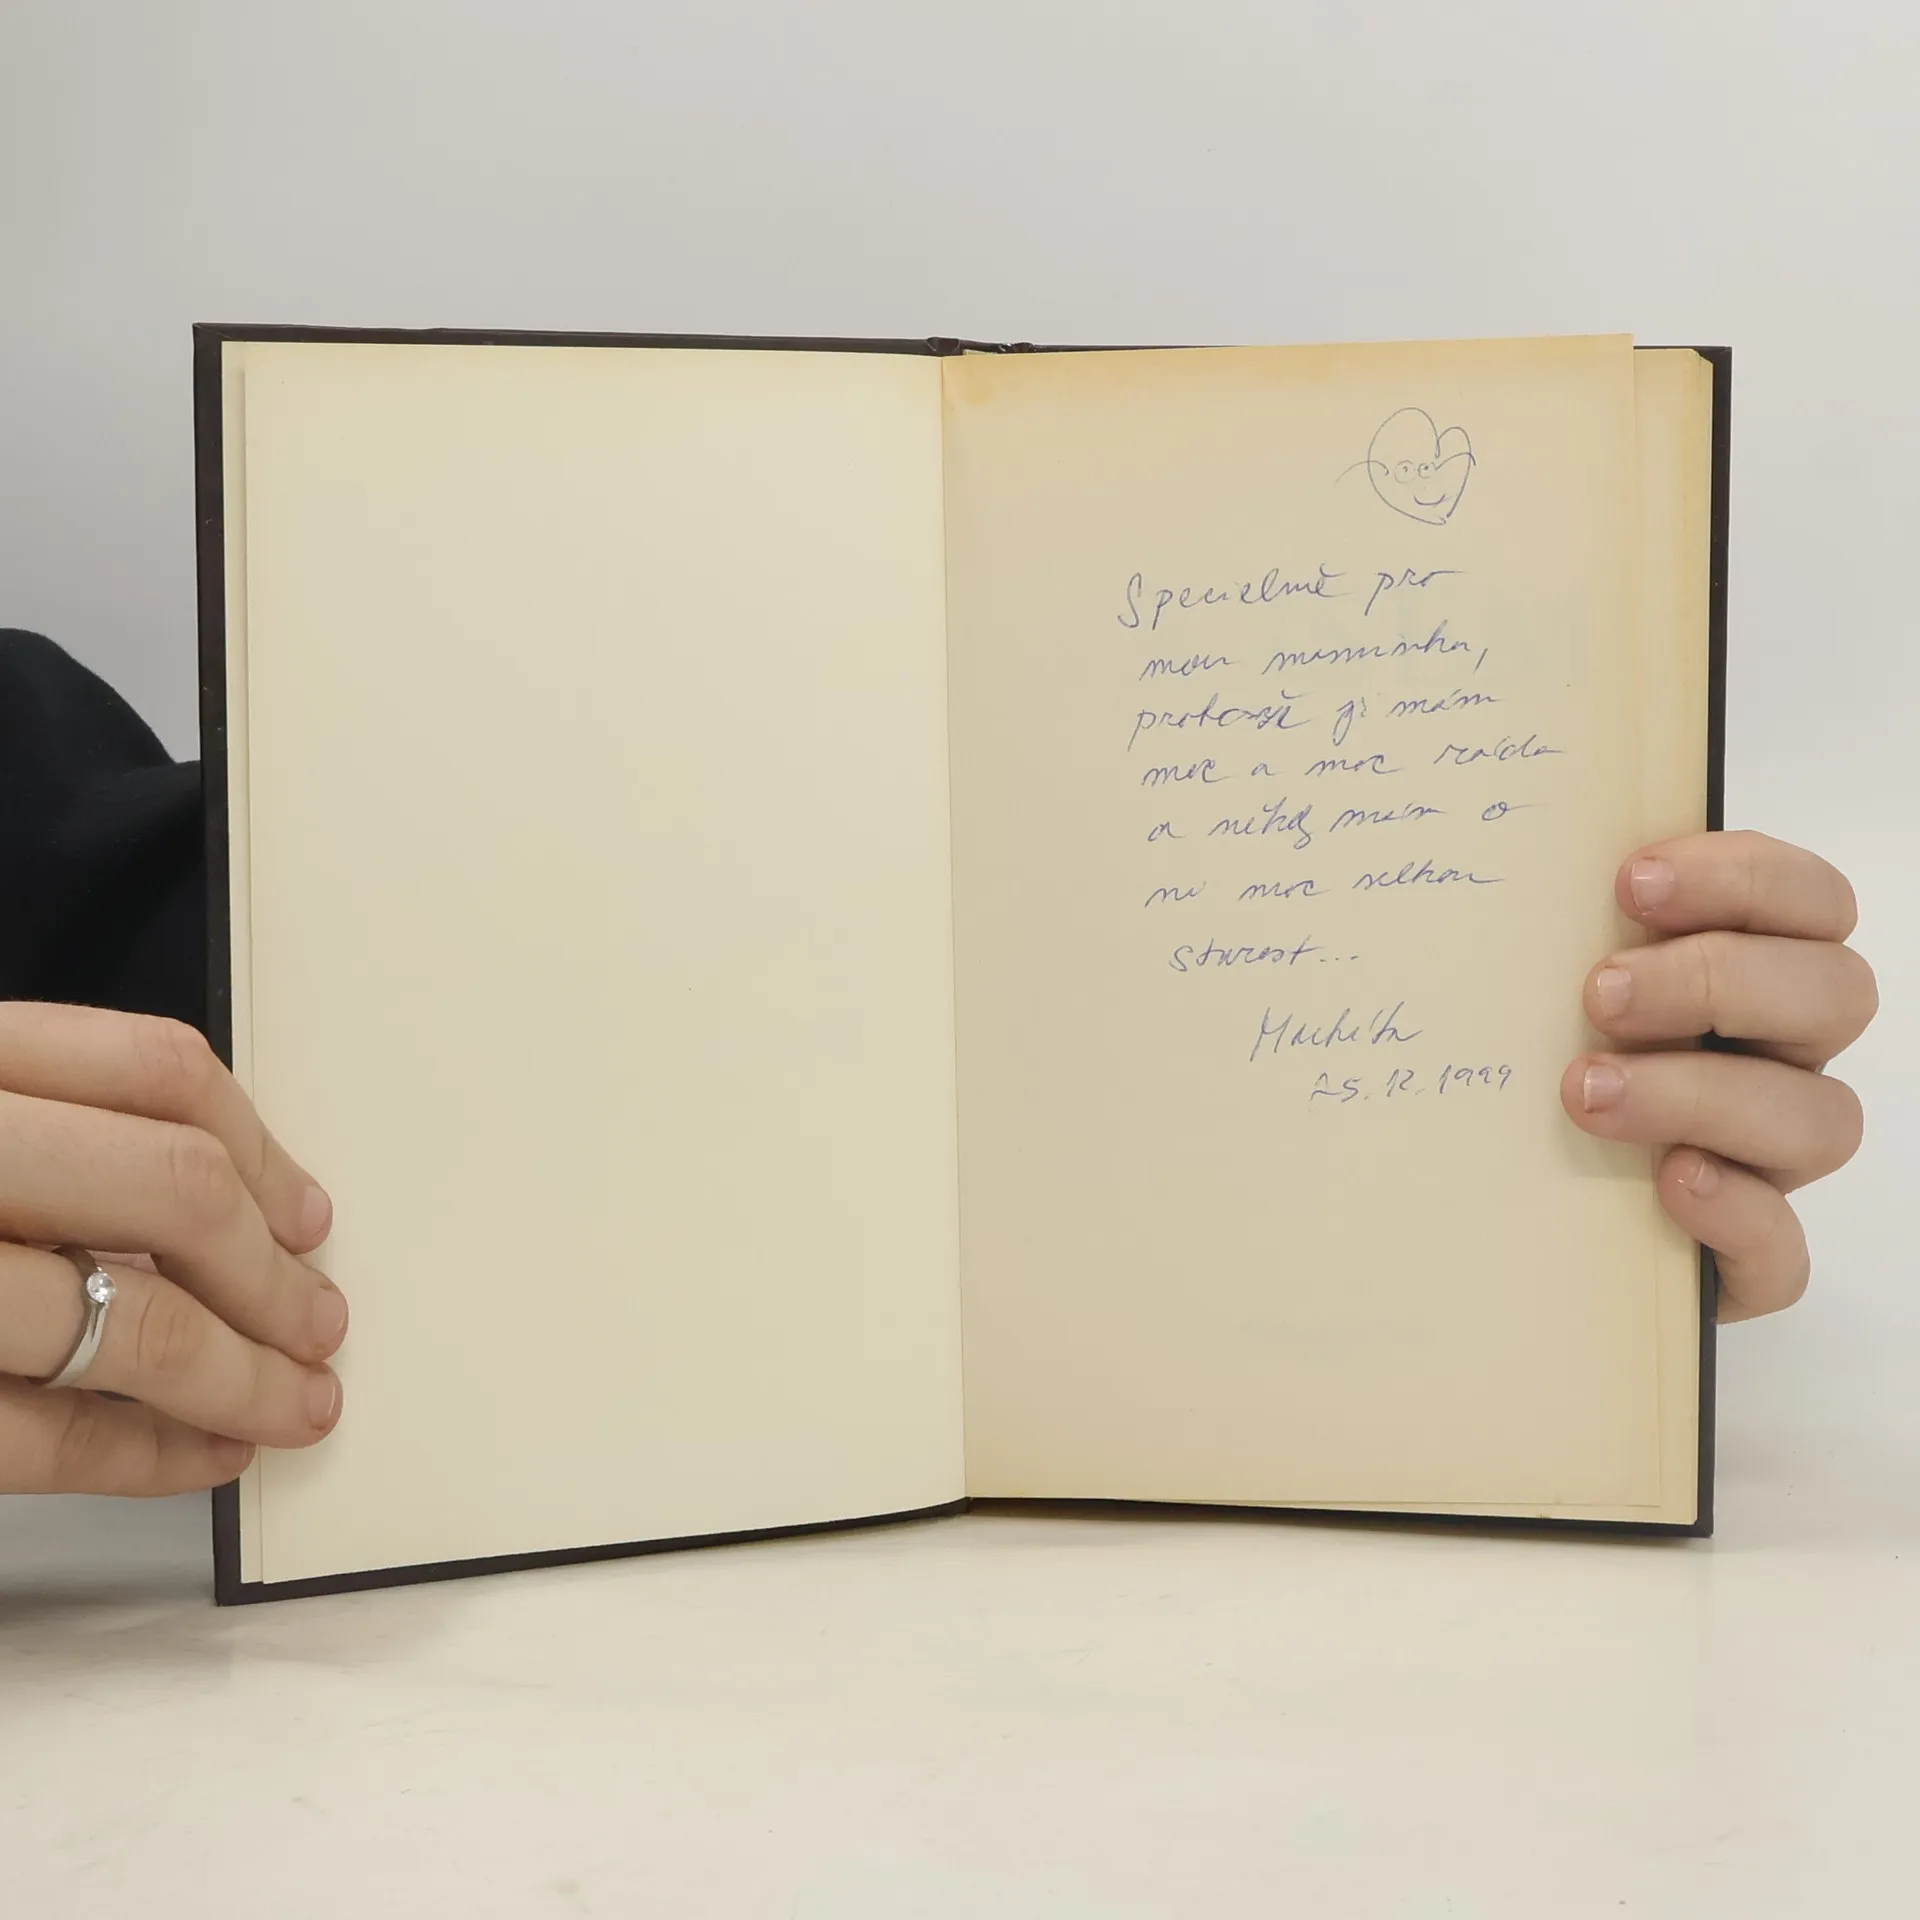 Specielně pro
mou maminku,
protože ji mám
moc a moc ráda
a někdy mám o
ni moc velkou
starost...
Markéta
25. 12. 1999